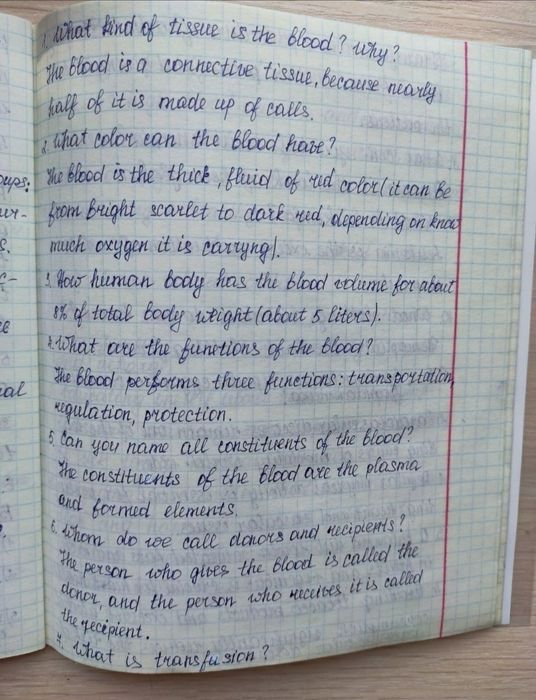 1. What kind of tissue is the blood? Why?
The blood is a connective tissue, because nearly
half of it is made up of calls.
2. What color can the blood have?
The blood is the thick, fluid of red color (it can be
from bright scarlet to dark red, depending on know
much oxygen it is carryng).
3. How human body has the blood volume for about
8% of total body weight (about 5 liters).
4. What are the functions of the blood?
The blood performs three functions: transportation,
regulation, protection.
5. Can you name all constituents of the blood?
The constituents of the blood are the plasma
and formed elements.
6. Whom do we call donors and recipients?
The person who gives the blood is called the
donor, and the person who receives it is called
the recipient.
7. What is transfusion?